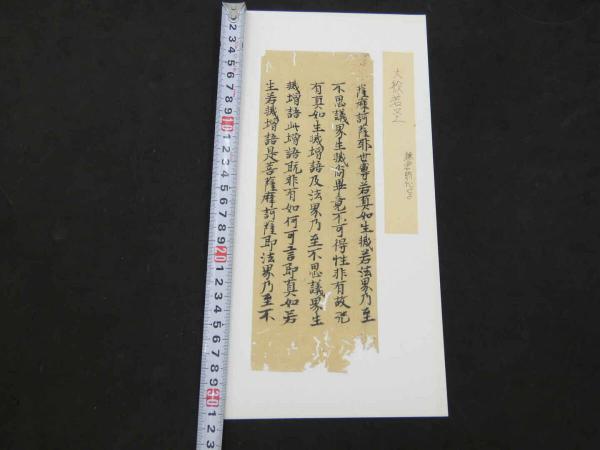 大般若经
薩摩訶薩非世尊若真如生滅若法界乃至
不思議界生滅尚畢竟不可得性非有故况
有真如生滅增語及法界乃至不思議界生
滅增語此增語既非有如何可言即真如若
生若滅增語是菩薩摩訶薩即法界乃至不
2 3 4 5 6 7 8 9 10 1 2 3 4 5 6 7 8 9 20 1 2 3 4 5 6 7 8 9 30 1 2 3